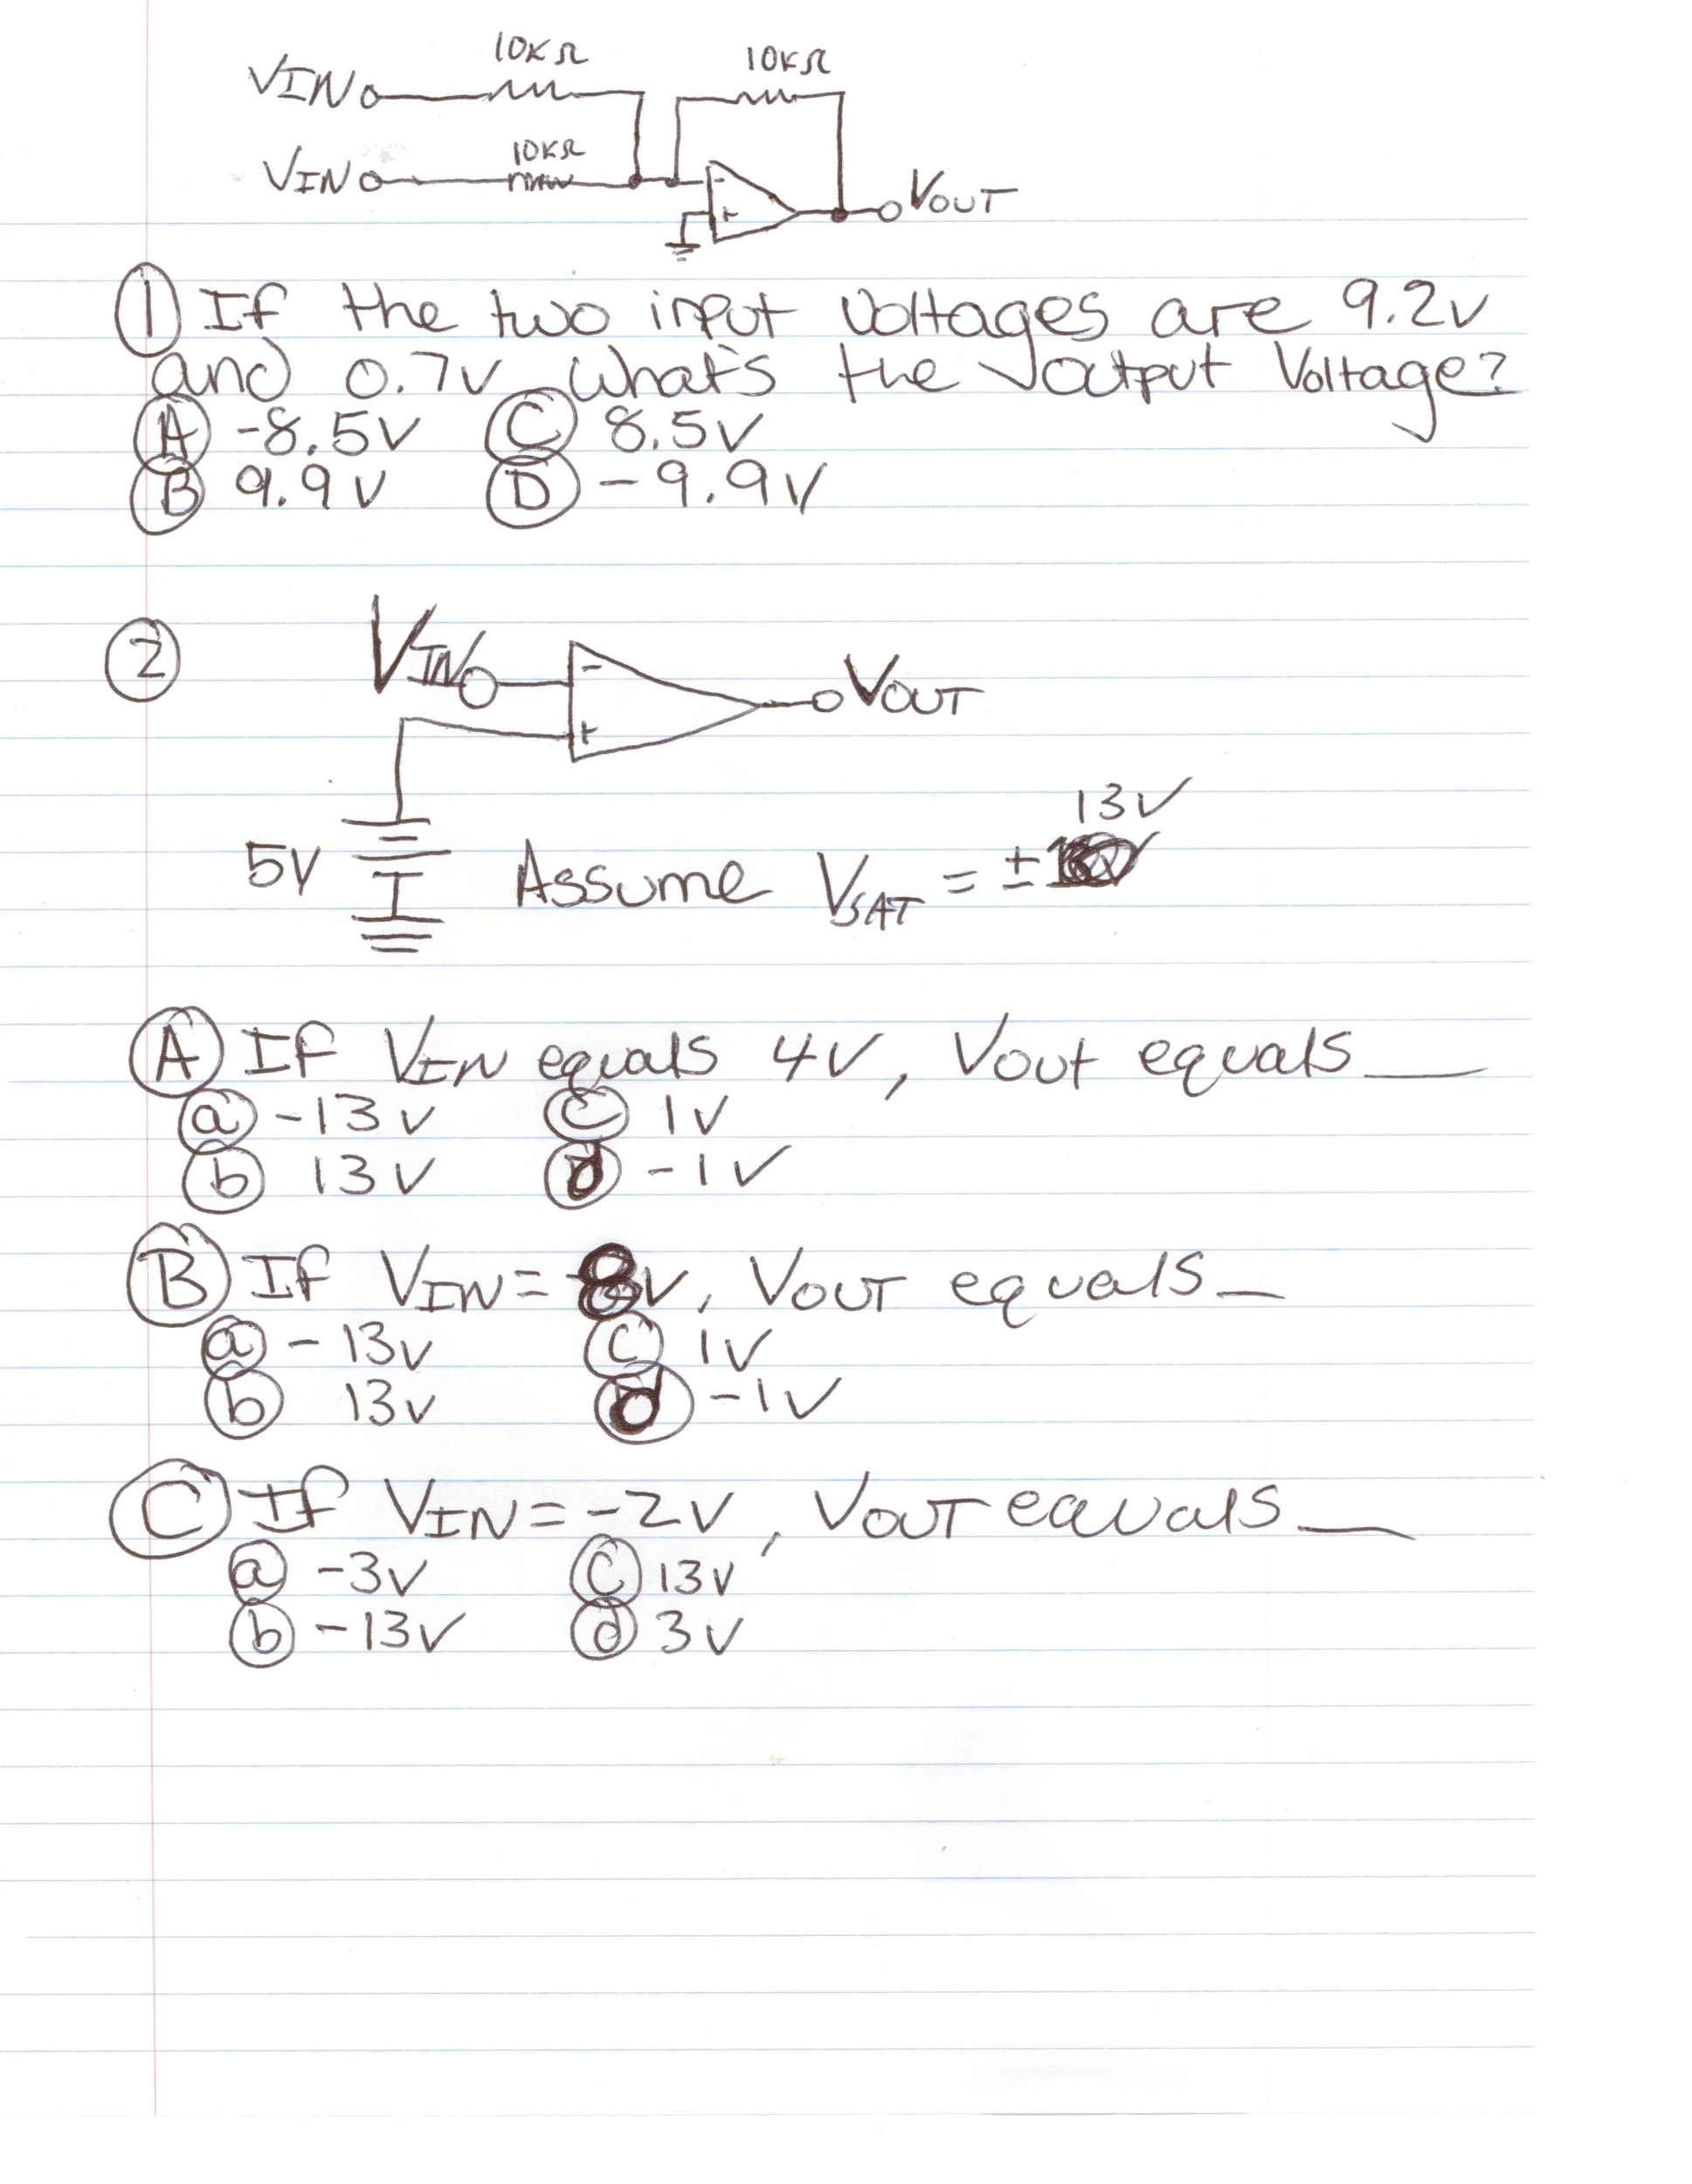 10KΩ 10KΩ
VIN
10KΩ
VIN VOUT
- +
① If the two input Voltages are 9.2v
and 0.7v what's the output Voltage?
Ⓐ -8.5V Ⓒ 8.5V
Ⓑ 9.9V Ⓓ -9.9V
② VIN - + VOUT
13V
5V Assume VSAT = ±
Ⓐ If VIN equals 4V, Vout equals __
ⓐ -13v ⓒ 1v
ⓑ 13v ⓓ -1V
Ⓑ If VIN = 8V, VOUT equals _
ⓐ -13v ⓒ 1V
ⓑ 13v ⓓ -1V
Ⓒ If VIN = -2V, VOUT equals __
ⓐ -3v ⓒ 13v
ⓑ -13V ⓓ 3V